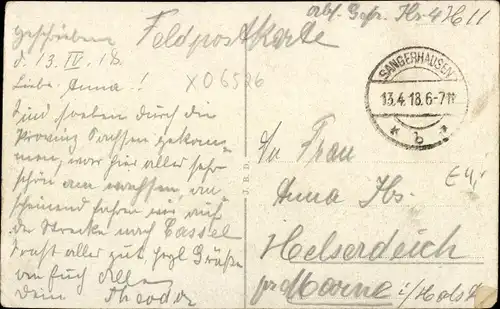 Geschrieben
d. 13. IV. 18.
Liebe Anna!
Sind soeben durch die
Provinz Sachsen gekom-
men, war hier alles sehr
schön am wachsen, an-
scheinend fahren wir auf
der Strecke nach Cassel
sonst alles gut herzl Grüße
an Euch alle
Dein Theodor
Feldpostkarte
X06526
Abs. Gefr. Hs. 4 H 11
SANGERHAUSEN
13.4.18.6-7N
* b *
J. B. D.
An Frau
Anna Hs.
E4,-
Helserdeich
per Marne i/Holst